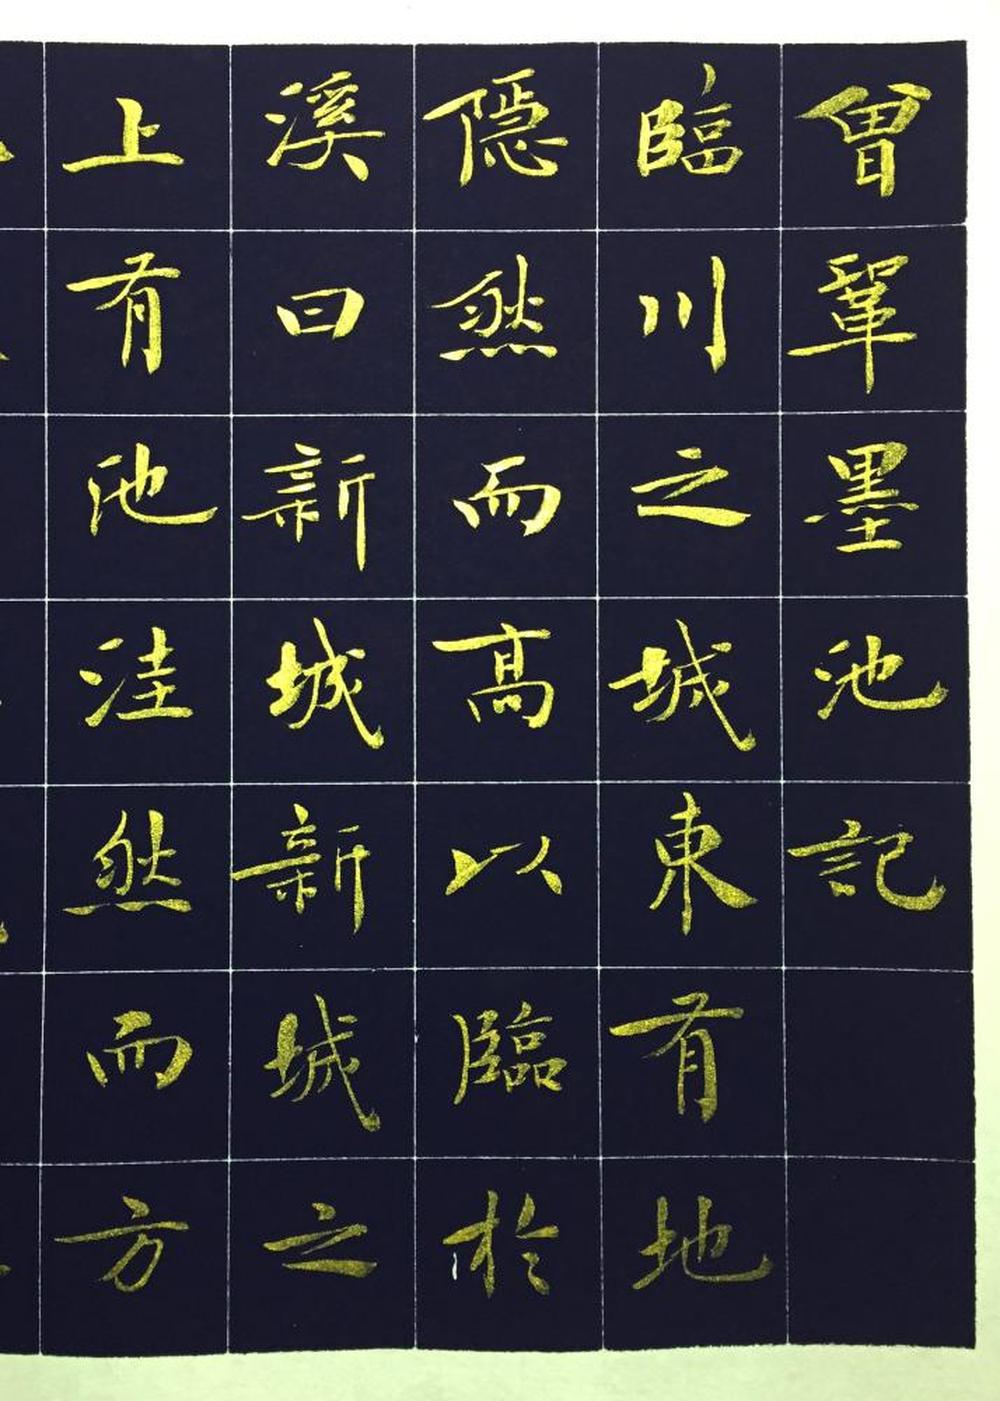 曾鞏墨池記
臨川之城東有地
隱然而高以臨於
溪曰新城新城之
上有池洼然而方